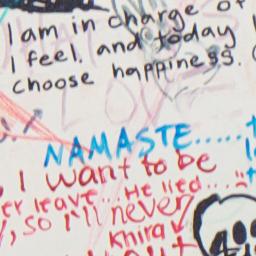 I am in charge of
I feel. and today I
choose happiness.
NAMASTE......
I want to be
er leave... He lied...
, so I'll never
Khira